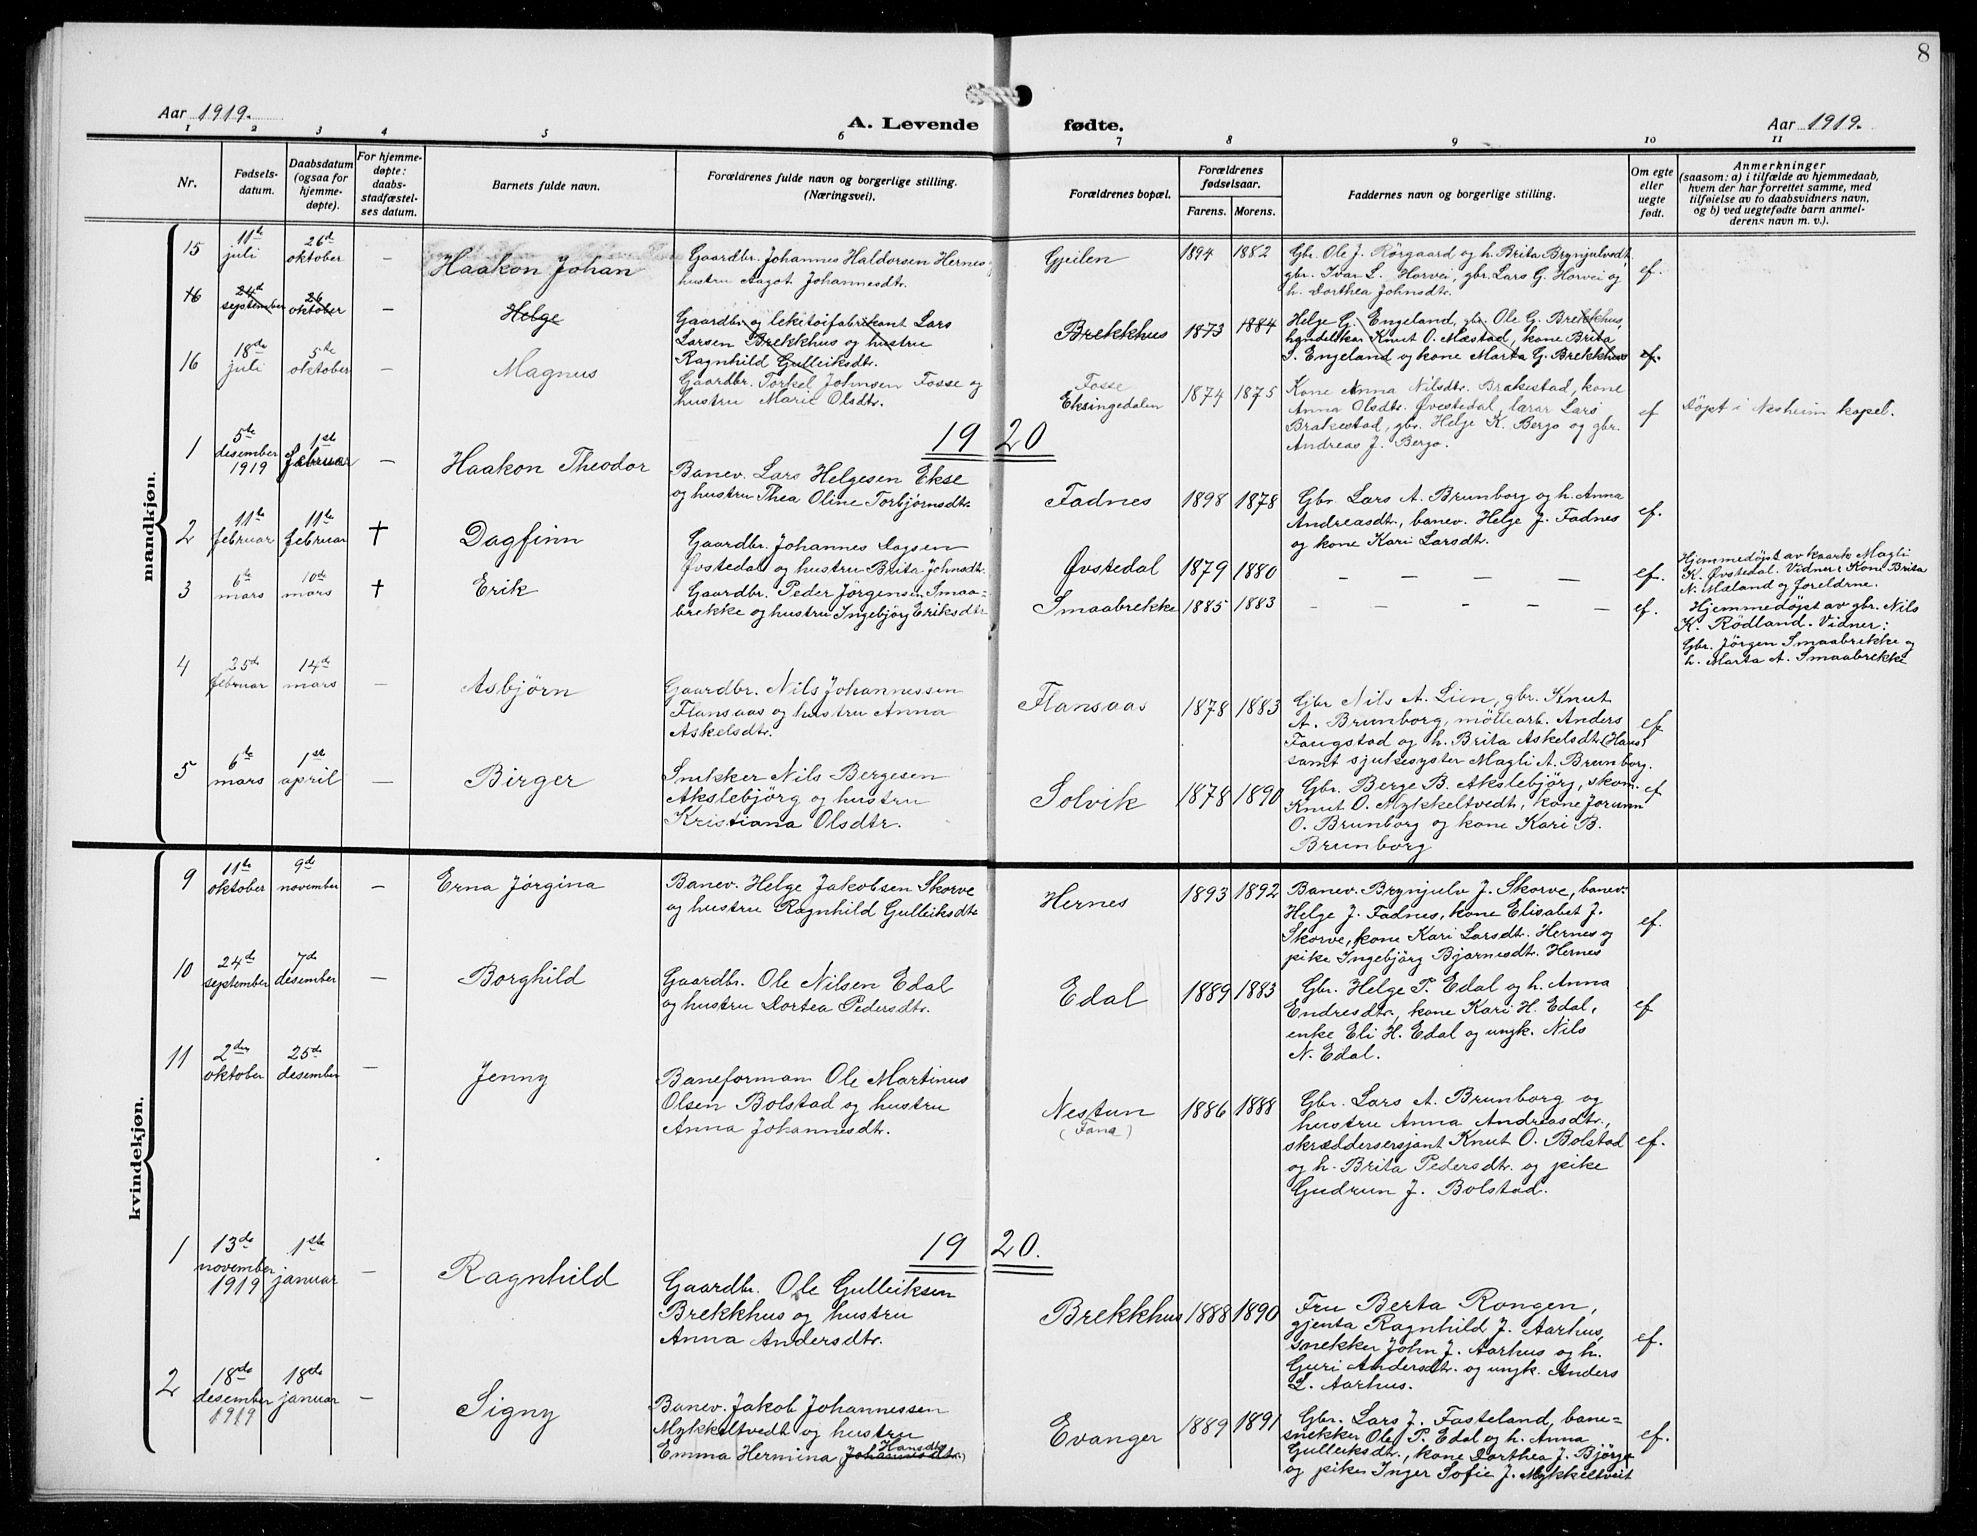 8
Aar 1919.
A. Levende fødte.
Aar 1919.
1 2 3 4 5 6 7 8 9 10 11
Nr.
Fødsels-
datum.
Daabsdatum
(ogsaa for
hjemme-
døpte).
For hjemme-
døpte:
daabs-
stadfæstel-
ses datum.
Barnets fulde navn.
Forældrenes fulde navn og borgerlige stilling.
(Næringsvei).
Forældrenes bopæl.
Forældrenes
fødselsaar.
Farens. Morens.
Faddernes navn og borgerlige stilling.
Om egte
eller
uegte
født.
Anmerkninger
(saasom: a) i tilfælde av hjemmedaab,
hvem der har forrettet samme, med
tilføielse av to daabsvidners navn,
og b) ved uegtefødte barn anmel-
derens navn m. v.).
mandkjøn.
15
11te
juli
26de
oktober
—
Haakon Johan
Gaardbr. Johannes Haldorsen Hernes
hustru Aagot Johannesdt.
Gjeilen
1894 1882
Gbr. Ole J. Rörgaard og h. Brita Brynjulvsdt,
gbr. Ivar L. Horvei, gbr. Lars G. Horvei og
h. Dorthea Johnsdt.
ef.
16
24de
september
26
oktober
—
Helge
Gaardbr og leketøifabrikant Lars
Larsen Brekkhus og hustru
Ragnhild Gulleiksdt.
Brekkhus
1873 1884
Helge G. Engeland, gbr. Ole G. Brekkhus,
handelskar Knut O. Mæstad, kone Brita
I. Engeland og kone Marta G. Brekkhus
ef.
16
18de
juli
5te
oktober
—
Magnus
Gaardbr. Torkel Johnsen Fosse og
hustru Mari Olsdtr.
Fosse
Eksingedalen
1874 1875
Kone Anna Nilsdtr. Brakestad, kone
Anna Olsdtr. Øvstedal, lærar Lars
Brakestad, gbr. Helge K. Bergo og gbr.
Andreas J. Bergo.
ef
Döpt i Nesheim kapel.
19 20
1
5te
desember
1919
1ste
februar
—
Haakon Theodor
Banev. Lars Helgesen Ekse
og hustru Thea Oline Torbjørnsdtr.
Fadnes
1898 1878
Gbr. Lars A. Brunborg og h. Anna
Andreasdt, banev. Helge J. Fadnes
og kone Kari Larsdt.
ef.
2
11te
februar
11te
februar
†
Dagfinn
Gaardbr. Johannes Dagsen
Øvstedal og hustru Brita Johnsdt.
Øvstedal
1879 1880
— — — — —
ef.
Hjemmedøpt av kaark. Magli
K. Øvstedal. Vidner: Kone Brita
N. Mæland og foreldrne.
3
6te
mars
10de
mars
†
Erik
Gaardbr. Peder Jørgensen Smaa-
brekke og hustru Ingebjörg Eriksdtr
Smaabrekke
1885 1883
— — — — —
ef.
Hjemmedøpt av gbr. Nils
K. Rödland. Vidner:
Gbr. Jörgen Smaabrekke og
h. Marta A. Smaabrekke
4
25de
februar
14de
mars
—
Asbjörn
Gaardbr. Nils Johannessen
Flansaas og hustru Anna
Askelsdtr.
Flansaas
1878 1883
Gbr Nils A. Lien, gbr. Knut
A. Brunborg, möllearb. Anders
Faugstad og h. Brita Askelsdtr. (Haus)
samt sjukesyster Magli A. Brunborg.
ef
5
6te
mars
1ste
april
—
Birger
Snekker Nils Bergesen
Akslebjörg og hustru
Kristiana Olsdtr.
Solvik
1878 1890
Gbr. Berge B. Akslebjörg, skom.
Knut O. Mykkeltvedt, kone Jorunn
O. Brunborg og kone Kari B.
Brunborg
ef
kvindekjøn.
9
11te
oktober
9de
november
—
Erna Jörgina
Banev. Helge Jakobsen Skorve
og hustru Ragnhild Gulleiksdtr
Hernes
1893 1892
Banev. Brynjulv J. Skorve, banev.
Helge J. Fadnes, kone Elisabet J.
Skorve, kone Kari Larsdt. Hernes og
pike Ingebjörg Bjarnesdt. Hernes
ef.
10
24de
september
7de
desember
—
Borghild
Gaardbr. Ole Nilsen Edal
og hustru Dortea Pedersdtr.
Edal
1889 1883
Gbr. Helge P. Edal og h. Anna
Endresdtr, kone Kari H. Edal,
enke Eli H. Edal og ungk. Nils
N. Edal.
ef
11
2den
oktober
25de
desember
—
Jenny
Baneformann Ole Martinus
Olsen Bolstad og hustru
Anna Johannesdtr.
Nestun
(Fana)
1886 1888
Gbr. Lars A. Brunborg og
hustru Anna Andreasdtr.,
skræddersersjant Knut O. Bolstad
og h. Brita Pedersdtr. og pike
Gudrun J. Bolstad.
ef.
19 20.
1
13de
november
1919
1ste
januar
—
Ragnhild
Gaardbr. Ole Gulleiksen
Brekkhus og hustru
Anna Andersdtr.
Brekkhus
1888 1890
Fru Berta Rongen,
gjenta Ragnhild J. Aarhus,
snekker John J. Aarhus og h.
Guri Andersdt. og ungk. Anders
L. Aarhus.
ef.
2
18de
desember
1919
18de
januar
—
Signy
Banev. Jakob Johannessen
Mykkeltvedt og hustru
Hansdtr
Emma Hermina Johannesdtr.
Evanger
1889 1891
Gbr. Lars J. Fasteland, bane-
snekker Ole P. Edal og h. Anna
Gulleiksdtr., kone Dorthea J. Björge
og pike Inger Sofie J. Mykkeltveit
ef.